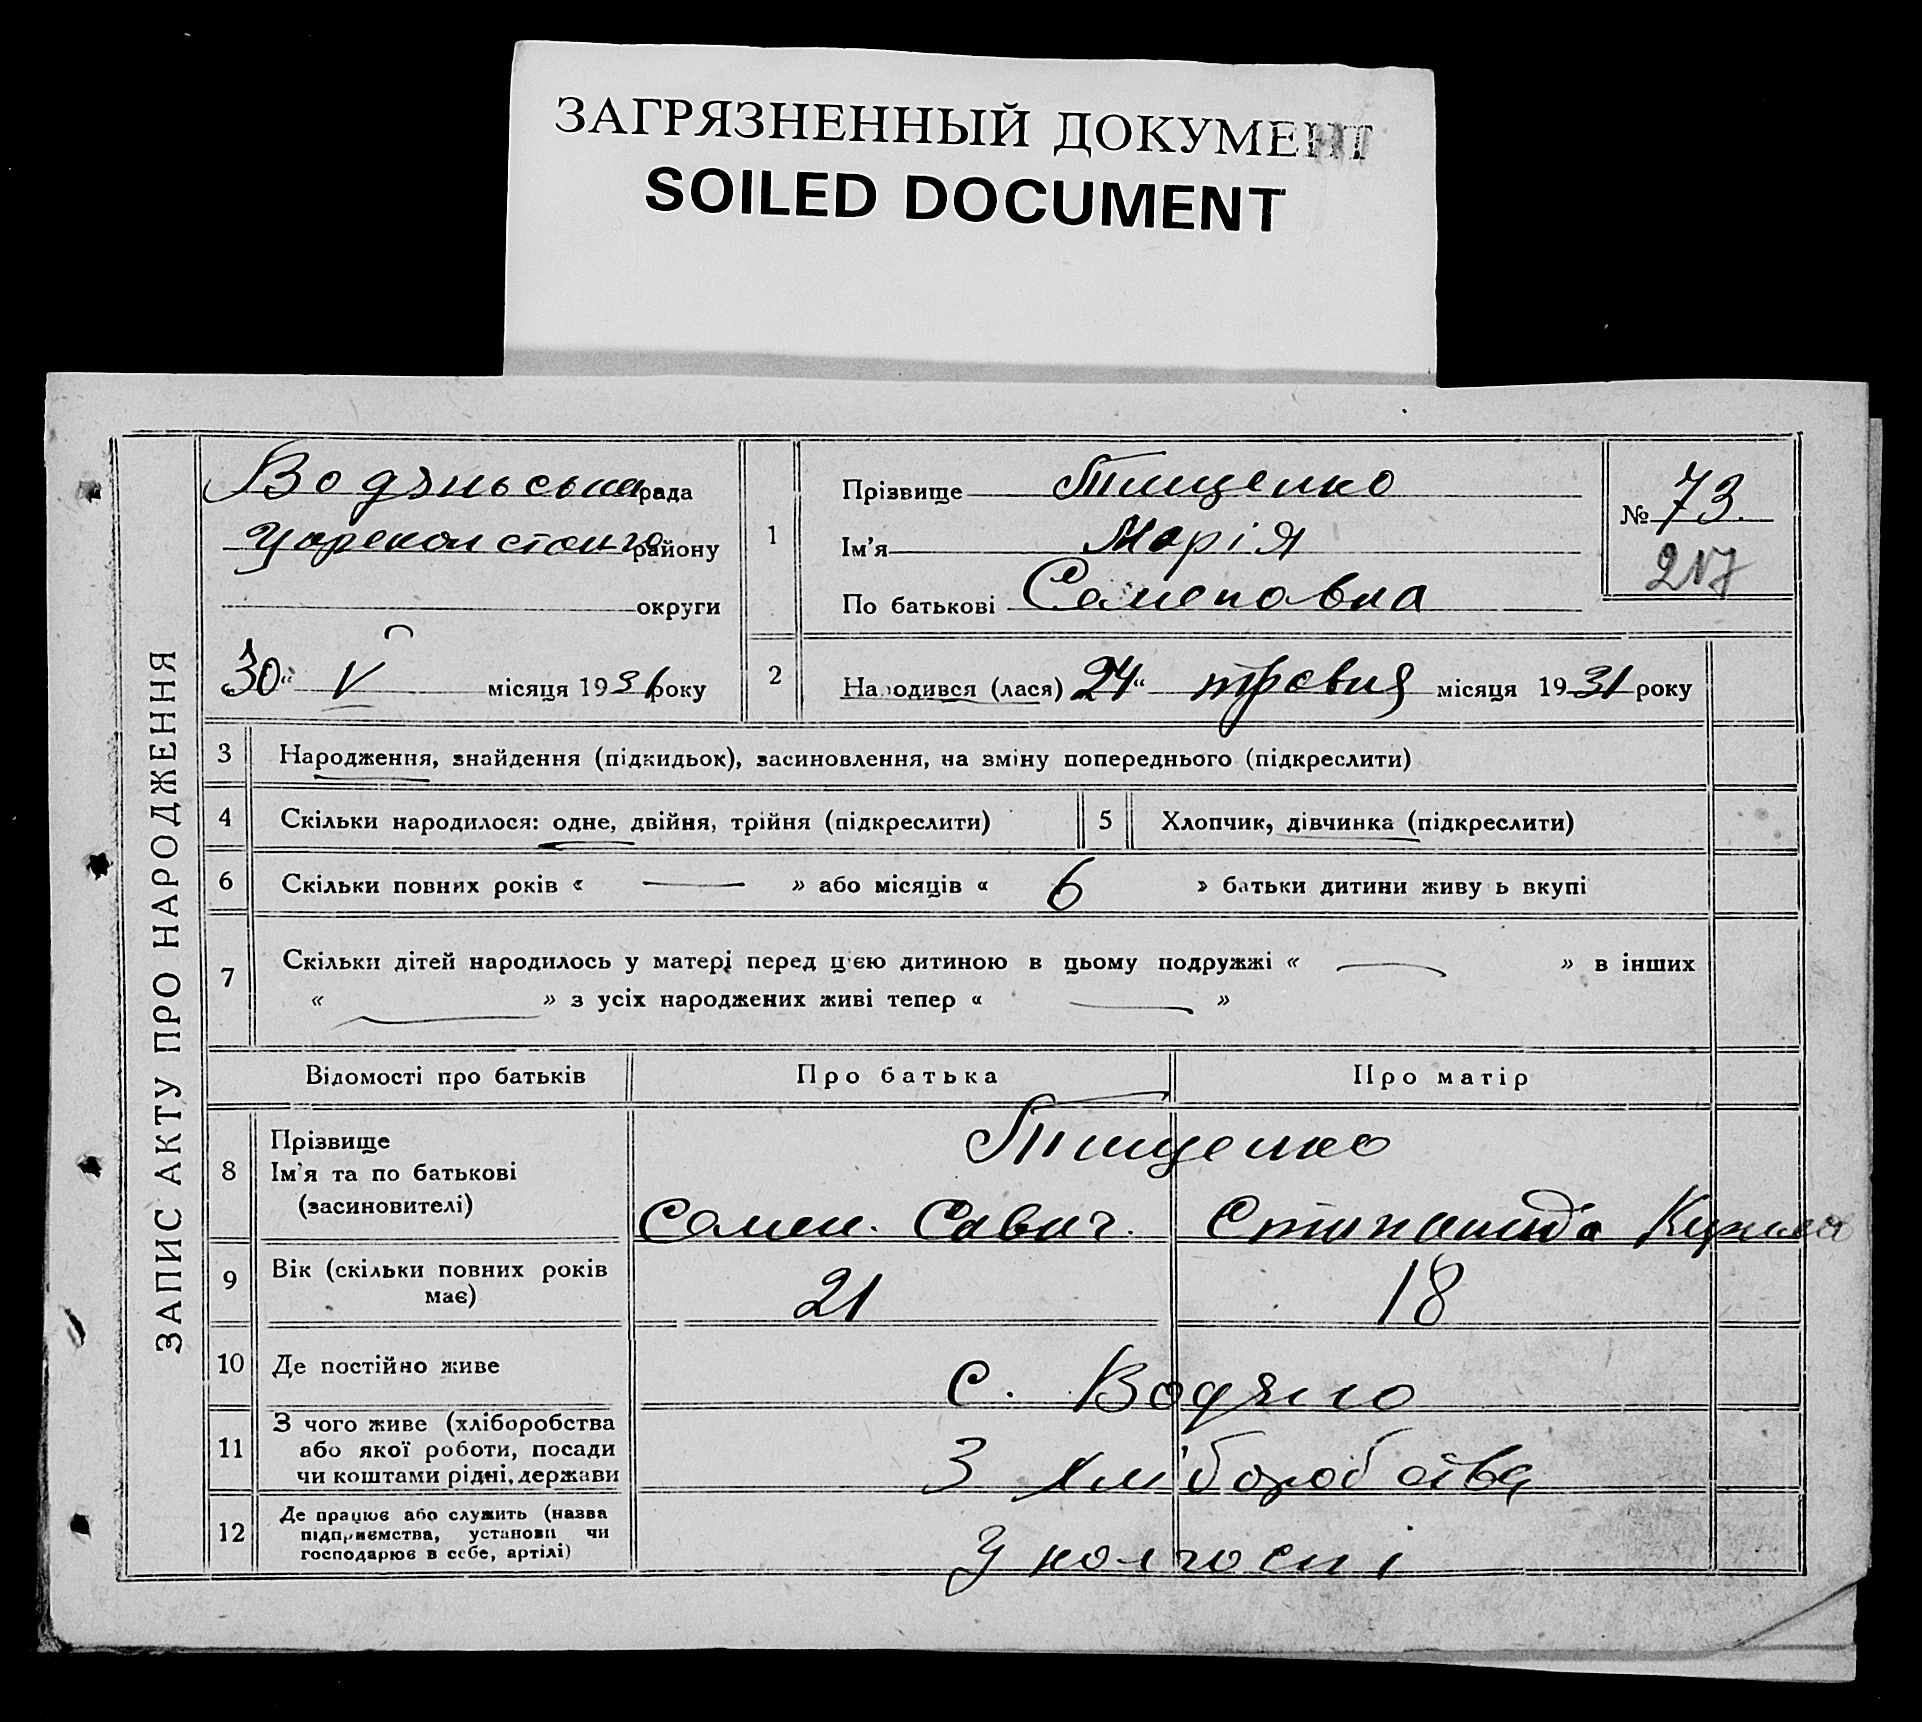 ЗАГРЯЗНЕННЫЙ ДОКУМЕНТ
SOILED DOCUMENT
ЗАПИС АКТУ ПРО НАРОДЖЕННЯ
Водяньська рада
району
округи
30 V місяця 1931 року
1
Прізвище Тищенко
Ім'я Марія
По батькові Семеновна
№ 73.
217
2
Народився (лася) 24 травня місяця 1931 року
3 Народження, знайдення (підкидьок), засиновлення, на зміну попереднього (підкреслити)
4 Скільки народилося: одне, двійня, трійня (підкреслити) 5 Хлопчик, дівчинка (підкреслити)
6 Скільки повних років « — » або місяців « 6 » батьки дитини живу ь вкупі
7 Скільки дітей народилось у матері перед цією дитиною в цьому подружжі « — » в інших
« — » з усіх народжених живі тепер « — »
Відомості про батьків Про батька Про матір
8 Прізвище
Ім'я та по батькові
(засиновителі)
Тищенко
Семен. Савич.
9 Вік (скільки повних років
має)
21 18
10 Де постійно живе с. Водяно
11 З чого живе (хліборобства
або якої роботи, посади
чи коштами рідні, держави
З хліборобства
12 Де працює або служить (назва
підприємства, установи чи
господарює в себе, артілі)
У колгоспі